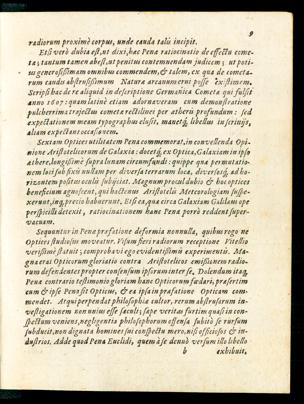 9
radiorum proximè corpus, unde cauda talis incipit.
Etsi verò dubia est, ut dixi, hæc Penæ ratiocinatio de effectu come-
tæ; tantum tamen abest, ut penitus contemnendam judicem; ut poti-
us generosissimam omnibus commendem, & talem, ex qua de cometa-
rum caudis abstrusissimum Naturæ arcanum erui posse existimem.
Scripsi hac de re aliquid in descriptione Germanica Cometæ qui fulsit
anno 1607: quam latinè etiam adornaveram cum demonstratione
pulcherrima trajectus cometæ rectilinei per ætherū profundum: sed
expectationem meam typographus elusit, manetq́ libellus in scriniis,
aliam expectans occasionem.
Sextam Opticæ utilitatem Pena commemorat, in convellenda Opi-
nione Aristotelicorum de Galaxia: docetq́, ex Optica, Galaxiam in ipso
æthere, longissimè supra lunam circumfundi: quippe quæ permutatio-
nem loci sub fixis nullam per diversa terrarum loca, diversasq́, ad ho-
rizontem positus cœli subjiciat. Magnum procul dubio & hoc optices
beneficium agnoscent, qui hactenus Aristotelis Meteorologiam suspe-
xerunt, inq, precio habuerunt. Etsi ea, quæ circa Galaxiam Galilæus ope
perspicilli detexit, ratiocinationem hanc Penæ porrò reddent super-
vacuam.
Sequuntur in Penæ præfatione deformia nonnulla, quibus rogo ne
Optices studiosus moveatur. Visum fieri radiorum receptione Vitellio
verissimè statuit; comprobavi ego evidentissimis experimentis. Ma-
gna erat Opticorum gloriatio contra Aristotelicos emissionem radio-
rum defendentes propter consensum ipsorum inter se. Dolendum itaq́,
Pena contrario testimonio gloriam hanc Opticorum fœdari, præsertim
cum & ipse Pena sit Opticus, & ea ipsa in præfatione Opticam com-
mendet. Atqui perpendat philosophiæ cultor, rerum abstrusarum in-
vestigationem non unius esse sæculi; sæpe veritas furtim quasi in con-
spectum veniens, negligentia philosophorum offensa subitò se rursum
subducit, non dignata homines sui conspectu mero, nisi officiosos & in-
dustrios. Adde quod Pena Euclidi, quem à se denuò versum isto libello
b
exhibuit,